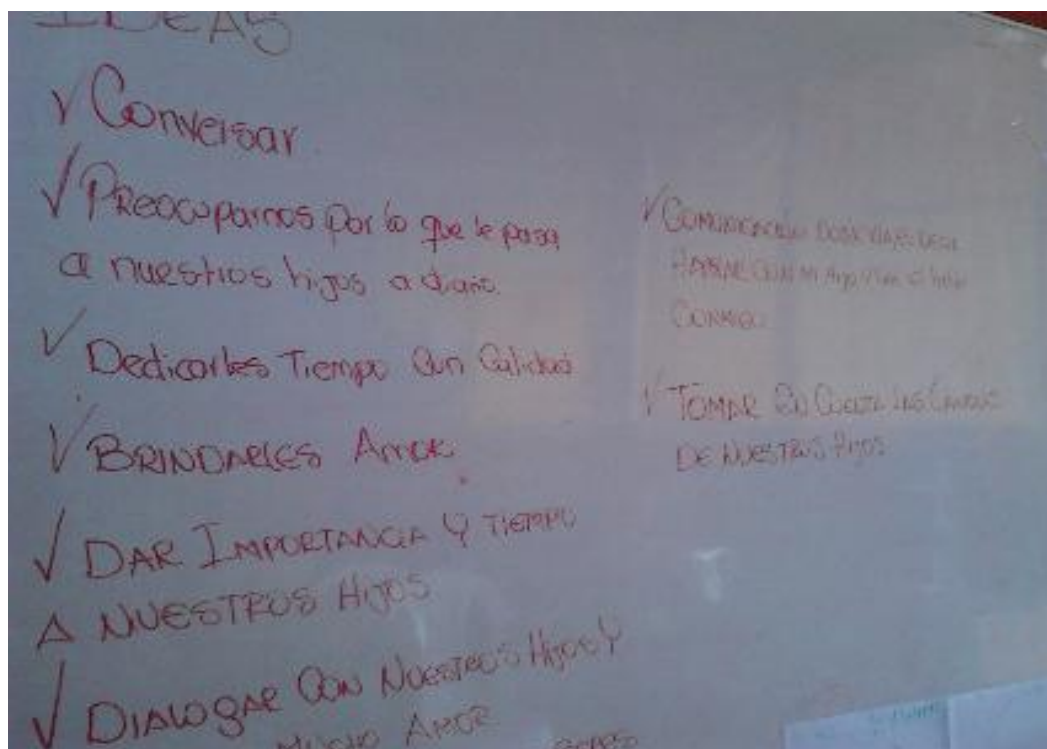 IDEAS
√ Conversar.
√ Preocuparnos por lo que le pasa
a nuestros hijos a diario.
√ Dedicarles Tiempo con Calidad
√ BRINDARLES AMOR.
√ DAR IMPORTANCIA Y TIEMPO
A NUESTROS HIJOS.
√ DIALOGAR CON NUESTROS HIJOS Y
MUCHO AMOR
√ COMUNICACIÓN
HABLAR CON MI hijo
CONMIGO
√ TOMAR EN CUENTA LAS
DE NUESTROS HIJOS